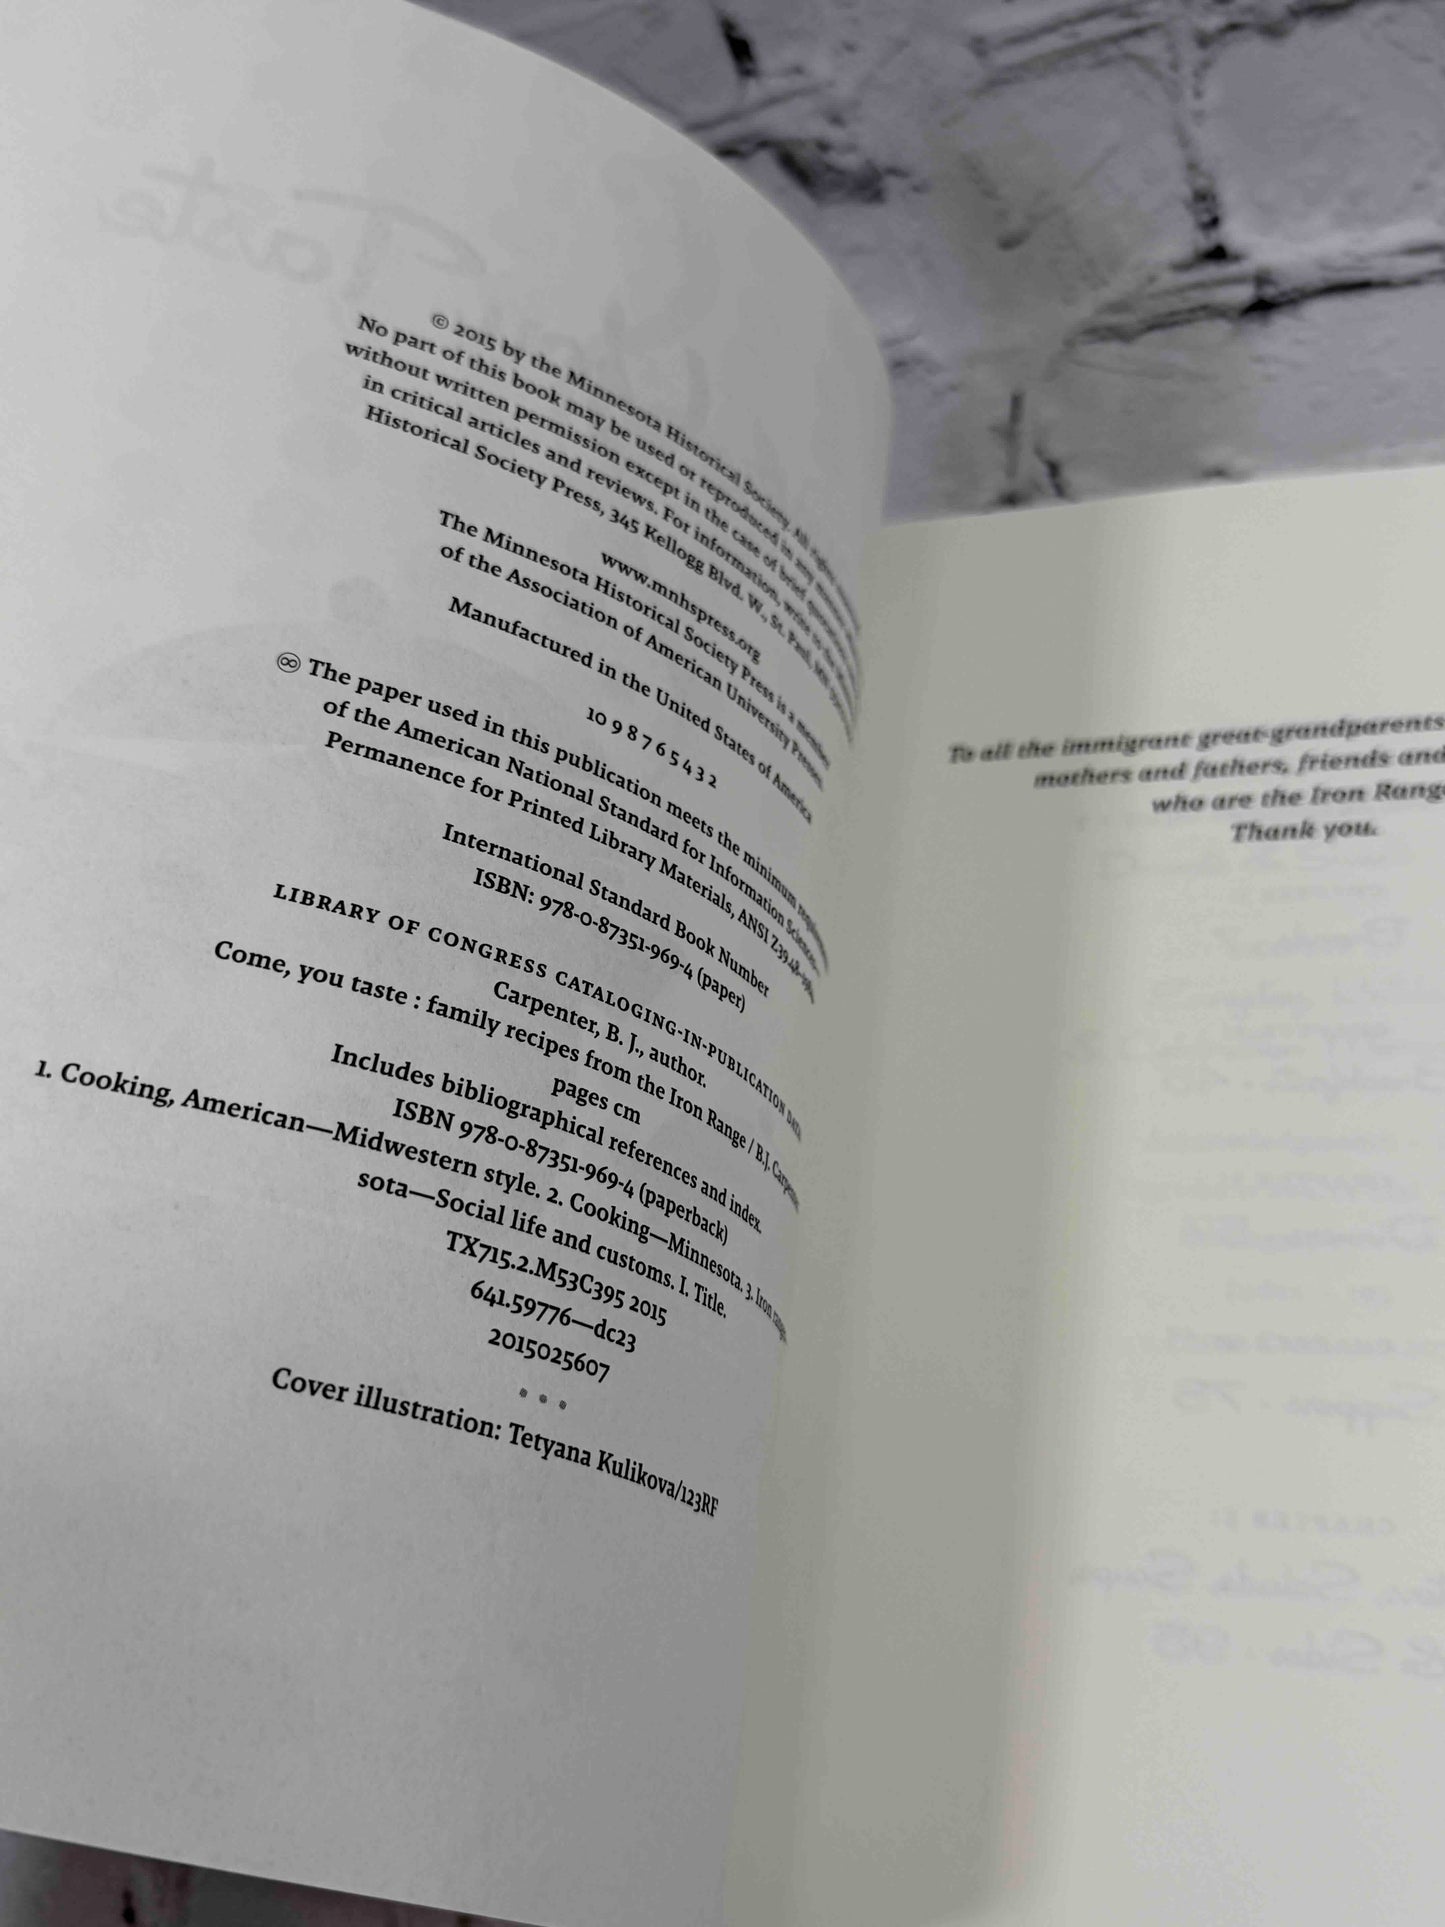 © 2015 by the Minnesota Historical Society. All rights
No part of this book may be used or reproduced in any manner
without written permission except in the case of brief
in critical articles and reviews. For information, write to the
Historical Society Press, 345 Kellogg Blvd. W., St. Paul, MN
www.mnhspress.org
The Minnesota Historical Society Press is a member
of the Association of American University Presses.
Manufactured in the United States of America
10 9 8 7 6 5 4 3 2
♾ The paper used in this publication meets the minimum
of the American National Standard for Information Sciences—
Permanence for Printed Library Materials, ANSI
International Standard Book Number
ISBN: 978-0-87351-969-4 (paper)
LIBRARY OF CONGRESS CATALOGING-IN-PUBLICATION DATA
Carpenter, B. J., author.
Come, you taste : family recipes from the Iron Range / B.J. Carpenter
pages cm
Includes bibliographical references and index.
ISBN 978-0-87351-969-4 (paperback)
1. Cooking, American—Midwestern style. 2. Cooking—Minnesota. 3. Iron
sota—Social life and customs. I. Title.
TX715.2.M53C395 2015
641.59776—dc23
2015025607
• • •
Cover illustration: Tetyana Kulikova/123RF
To all the immigrant great-grandparents
mothers and fathers, friends and
who are the Iron Rang
Thank you.